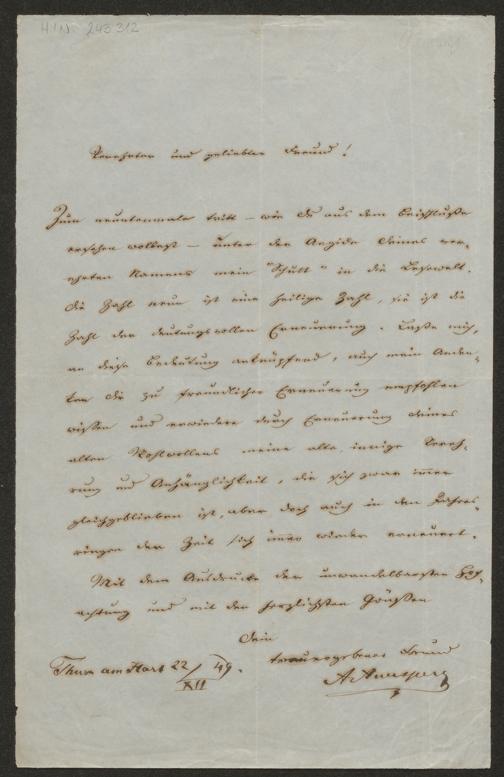 HIN 243312
Verehrter und geliebter Freund!
Zum neuntenmale tritt – wie Du aus dem Beischluße
ersehen wollest – unter der Aegide Deines ver-
ehrten Namens mein "Schutt" in die Lesewelt.
Die Zahl neun ist eine heilige Zahl, sie ist die
Zahl der deutungsvollen Erneuerung. Laße mich,
an diese Bedeutung anknüpfend, auch mein Anden-
ken Dir zu freundlicher Erneuerung empfohlen
wißen und erwiedere durch Erneuerung Deines
alten Wohlwollens meine alte, innige Vereh-
rung und Anhänglichkeit, die sich zwar immer
gleichgeblieben ist, aber doch auch in den Jahres-
ringen der Zeit sich immer wieder erneuert.
Mit dem Ausdrucke der unwandelbarsten Hoch-
achtung und mit den herzlichsten Grüßen
Dein
treuergebener Freund
Thurn am Hart 22/XII 49.
AAuersperg